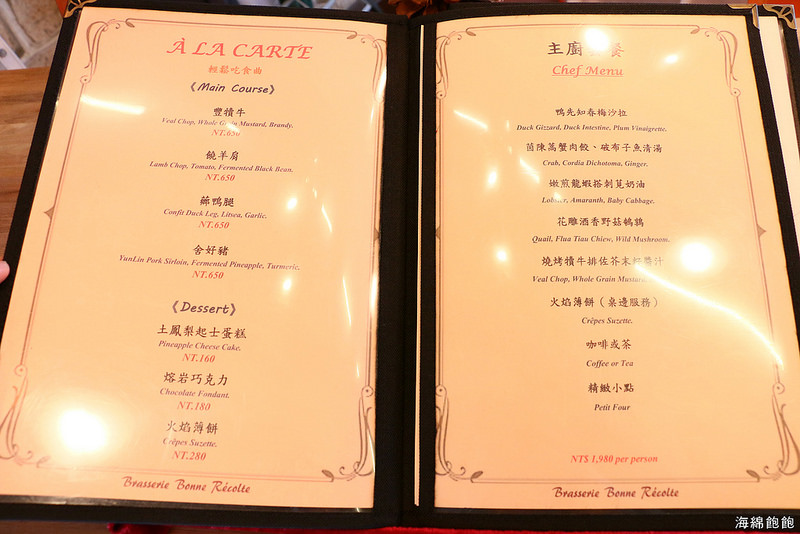 À LA CARTE
輕鬆吃食曲
《Main Course》
豐犢牛
Veal Chop, Whole Grain Mustard, Brandy.
NT.650
饒羊肩
Lamb Chop, Tomato, Fermented Black Bean.
NT.650
鴨腿
Confit Duck Leg, Litsea, Garlic.
NT.650
舍好豬
YunLin Pork Sirloin, Fermented Pineapple, Turmeric.
NT.650
《Dessert》
土鳳梨起士蛋糕
Pineapple Cheese Cake.
NT.160
熔岩巧克力
Chocolate Fondant.
NT.180
火焰薄餅
Crêpes Suzette.
NT.280
Brasserie Bonne Récolte
主廚餐
Chef Menu
鴨先知春梅沙拉
Duck Gizzard, Duck Intestine, Plum Vinaigrette.
茵陳蒿蟹肉餃、破布子魚清湯
Crab, Cordia Dichotoma, Ginger.
嫩煎龍蝦搭刺莧奶油
Lobster, Amaranth, Baby Cabbage.
花雕酒香野菇鵪鶉
Quail, Flua Tiau Chiew, Wild Mushroom.
燒烤犢牛排佐芥末籽醬汁
Veal Chop, Whole Grain Mustard.
火焰薄餅（桌邊服務）
Crêpes Suzette.
咖啡或茶
Coffee or Tea
精緻小點
Petit Four
NT$ 1,980 per person
Brasserie Bonne Récolte
海綿飽飽